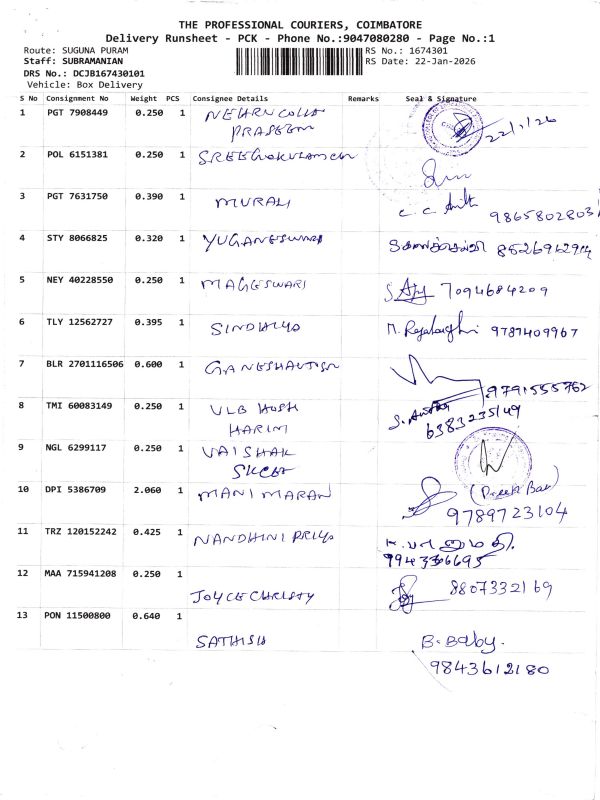 THE PROFESSIONAL COURIERS, COIMBATORE
Delivery Runsheet - PCK - Phone No.:9047080280 - Page No.:1
Route: SUGUNA PURAM RS No.: 1674301
Staff: SUBRAMANIAN RS Date: 22-Jan-2026
DRS No.: DCJB167430101
Vehicle: Box Delivery
S No Consignment No Weight PCS Consignee Details Remarks Seal & Signature
1 PGT 7908449 0.250 1 NEHRU 22/1/26
PRADEEM
2 POL 6151381 0.250 1
3 PGT 7631750 0.390 1 MURALI C. C. 9865802803
4 STY 8066825 0.320 1 YUGANESWARI 8526912914
5 NEY 40228550 0.250 1 MAGESWARI 7094684209
6 TLY 12562727 0.395 1 SINDHUYA 9787409967
7 BLR 2701116506 0.600 1 9791555762
8 TMI 60083149 0.250 1 VLB HOSH S.
HARINI 6383235149
9 NGL 6299117 0.250 1 VAISHAK
SKCET
10 DPI 5386709 2.060 1 MANIMARAN
9789723104
11 TRZ 120152242 0.425 1 NANDHINI PRIYA
9943306695
12 MAA 715941208 0.250 1 JOYCE CHRISTY 8807332169
13 PON 11500800 0.640 1 SATHISH B. Baby.
9843612180